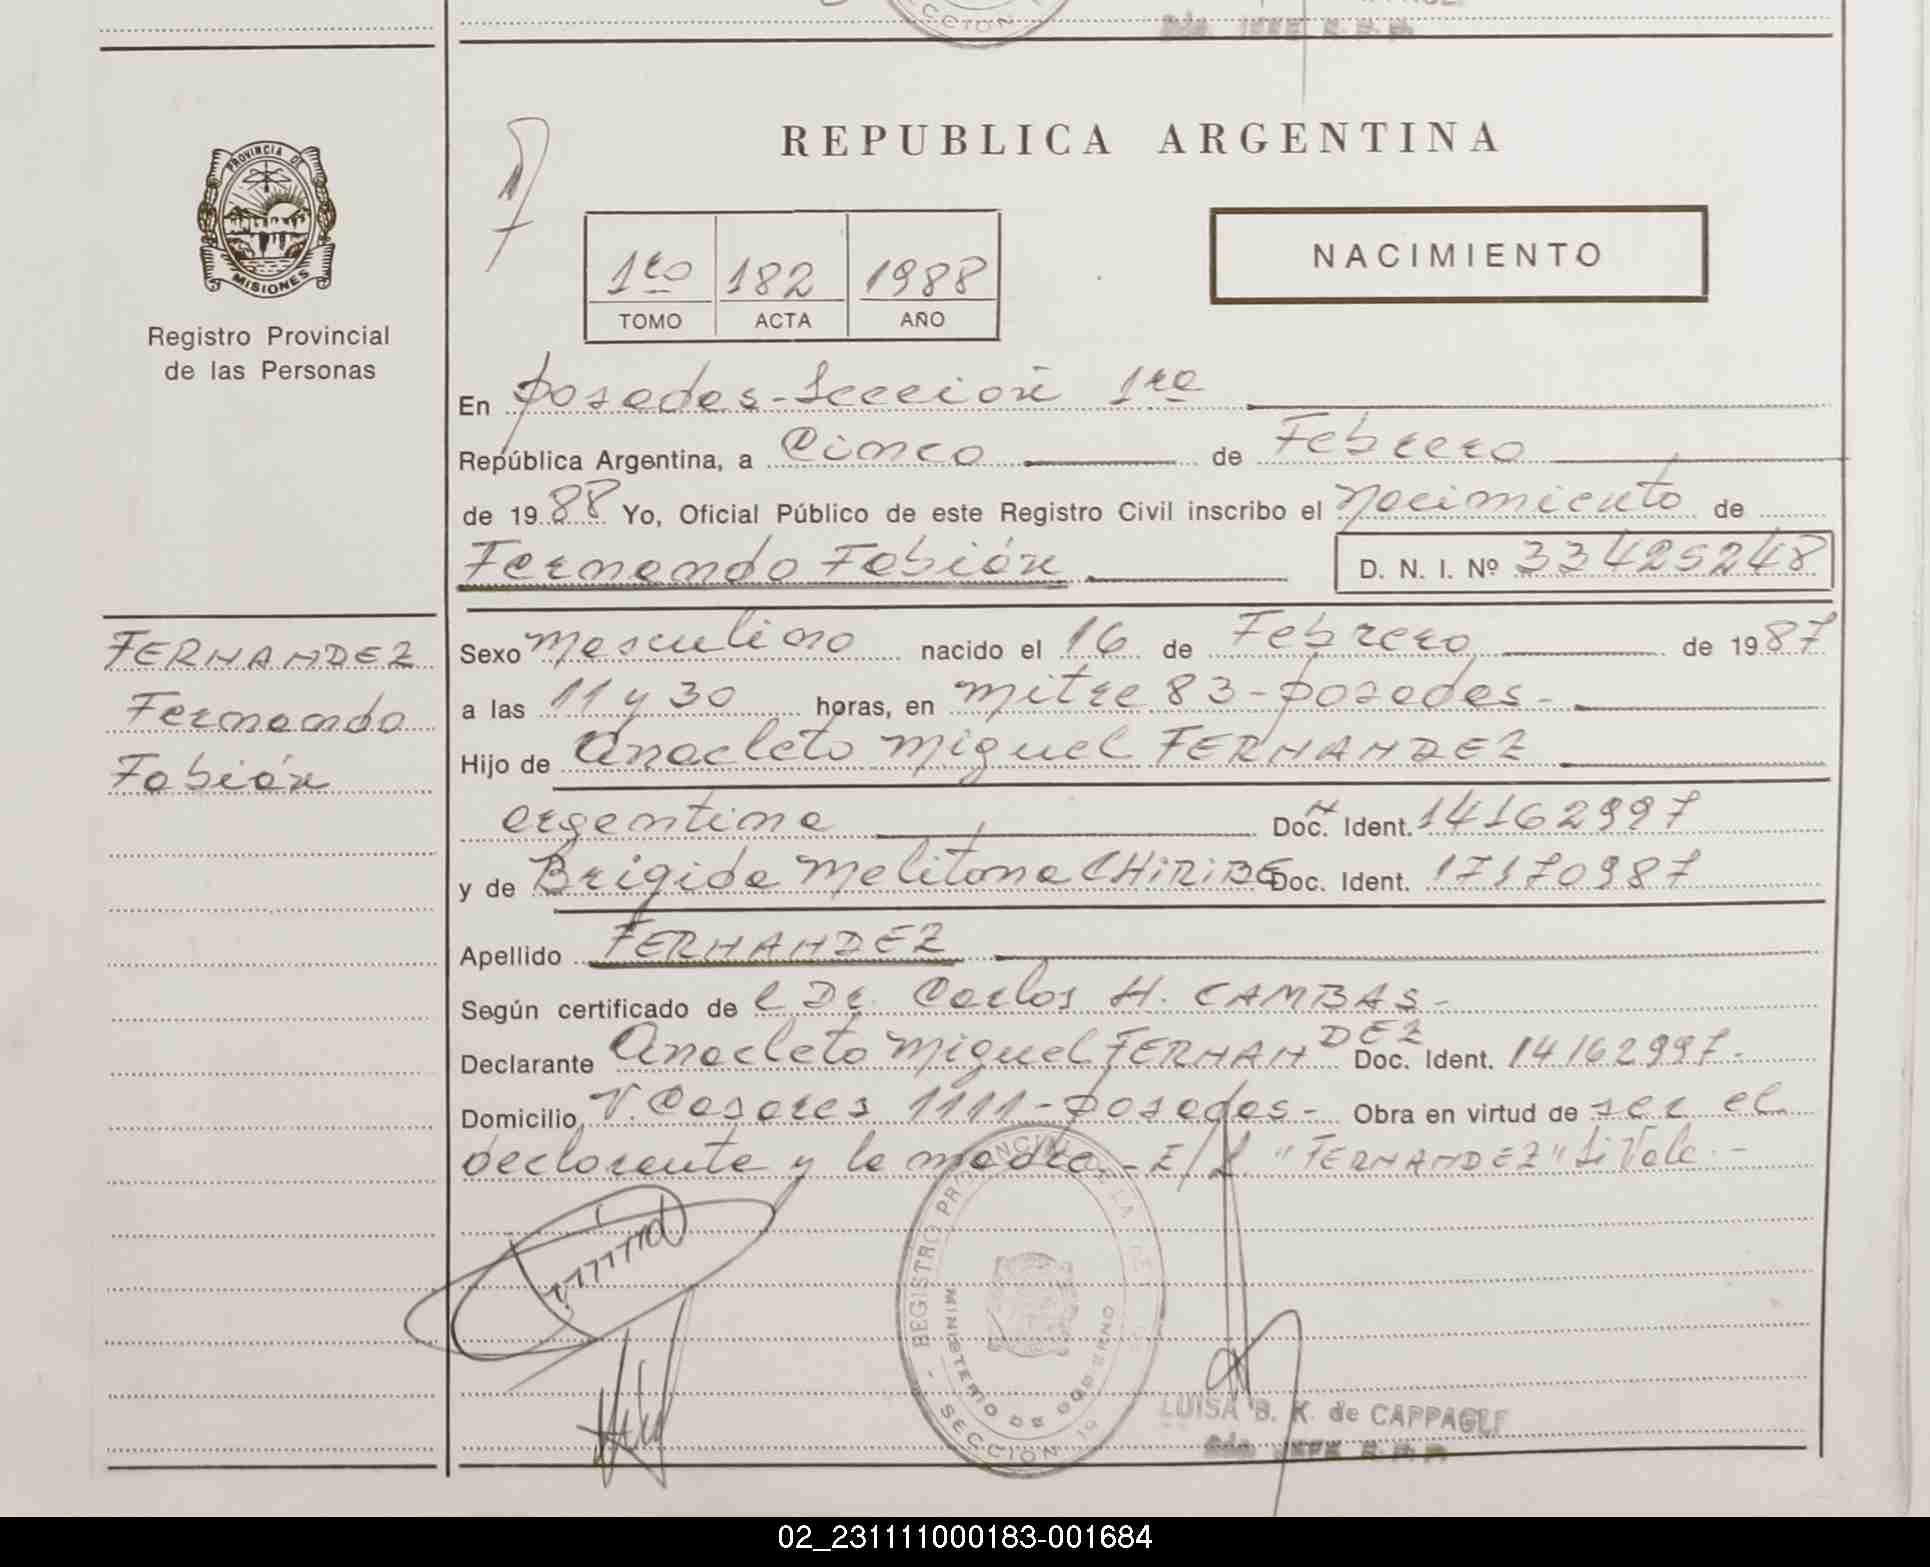 REPUBLICA ARGENTINA
PROVINCIA DE
MISIONES
Registro Provincial
de las Personas
1ro 182 1988
TOMO ACTA AÑO
NACIMIENTO
En Posadas - Sección 1ra
República Argentina, a Cinco de Febrero
de 19 88 Yo, Oficial Público de este Registro Civil inscribo el nacimiento de
Fernando Fabián D. N. I. Nº 33425248
FERNANDEZ
Fernando
Fabián
Sexo masculino nacido el 16 de Febrero de 19 87
a las 11 y 30 horas, en mitre 83 - posadas -
Hijo de Anacleto Miguel FERNANDEZ
argentino Doc. Ident. 14162997
y de Brigida Melitona CHIRIBE Doc. Ident. 17170987
Apellido FERNANDEZ
Según certificado de l Dr. Carlos H. CAMBAS -
Declarante Anacleto Miguel FERNANDEZ Doc. Ident. 14162997 -
Domicilio V. Casares 1111 - posadas - Obra en virtud de ser el
declarante y la madre. - E/L "FERNANDEZ" Si Vale. -
REGISTRO PROVINCIAL DE LAS
MINISTERIO DE GOBIERNO
SECCION 1a
LUISA B. K. de CAPPAGLI
02_231111000183-001684